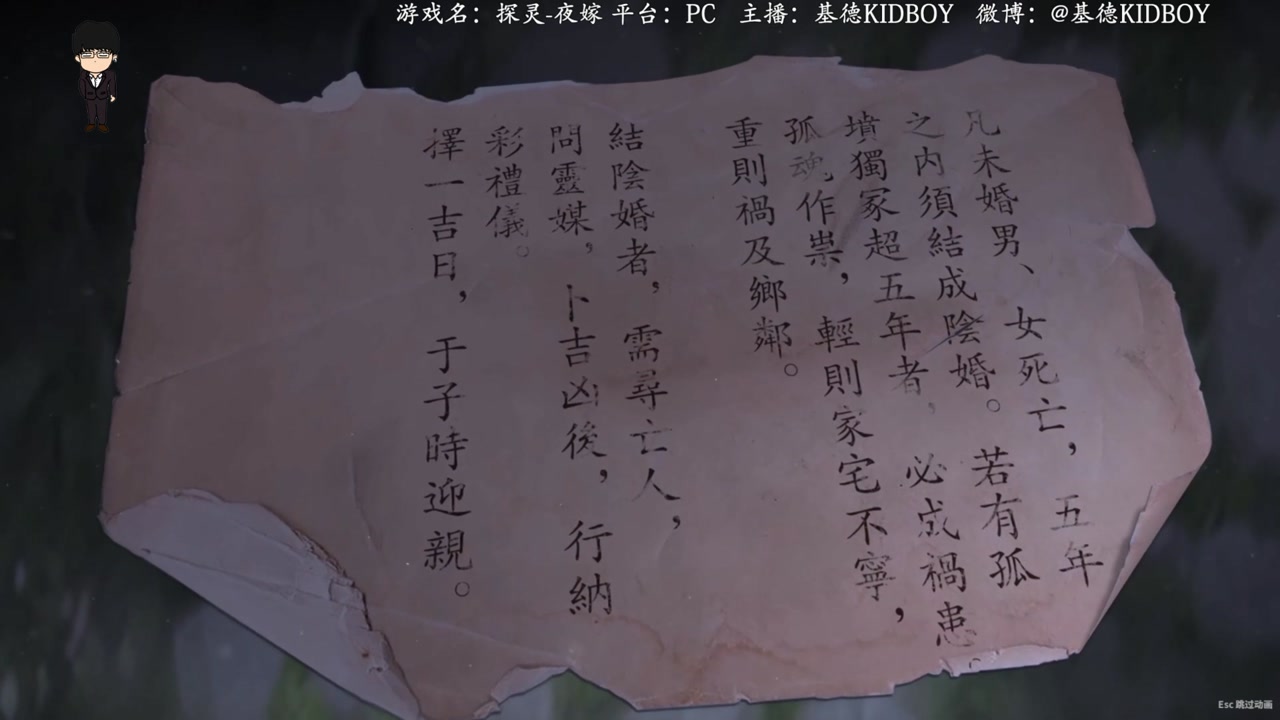 游戏名：探灵-夜嫁 平台：PC 主播：基德KIDBOY 微博：@基德KIDBOY
凡未婚男、女死亡，五年
之内須結成陰婚。若有孤
墳獨冢超五年者，必成禍患。
孤魂作祟，輕則家宅不寧，
重則禍及鄉鄰。
結陰婚者，需尋亡人，
問靈媒，卜吉凶後，行納
彩禮儀。
擇一吉日，于子時迎親。
Esc 跳过动画